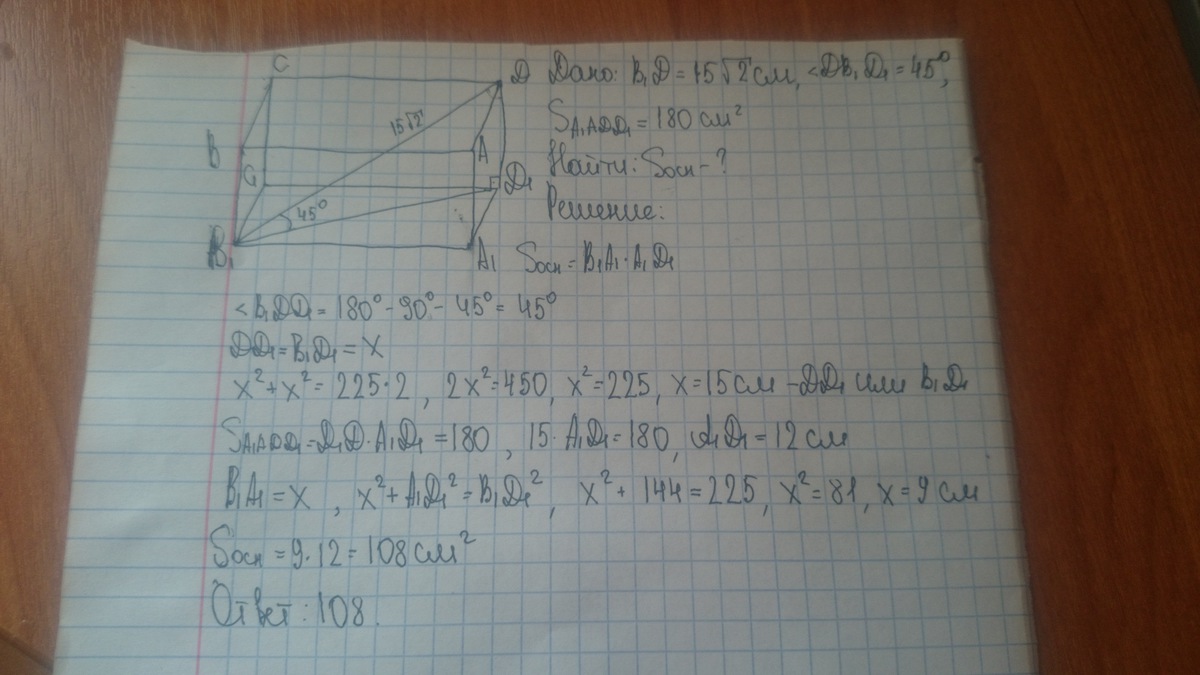 C
D
Дано: B₁D = 15√2 см, <DB₁D₁ = 45°,
15√2
S_A₁ADD₁ = 180 см²
B
A
Найти: Sосн - ?
C₁
D₁
Решение:
45°
B₁
A₁
Sосн = B₁A₁·A₁D₁
<B₁DD₁ = 180° - 90° - 45° = 45°
DD₁ = B₁D₁ = x
x² + x² = 225·2, 2x² = 450, x² = 225, x = 15 см - DD₁ или B₁D₁
S_A₁ADD₁ = D₁D·A₁D₁ = 180, 15·A₁D₁ = 180, A₁D₁ = 12 см
B₁A₁ = x, x² + A₁D₁² = B₁D₁², x² + 144 = 225, x² = 81, x = 9 см
Sосн = 9·12 = 108 см²
Ответ: 108.